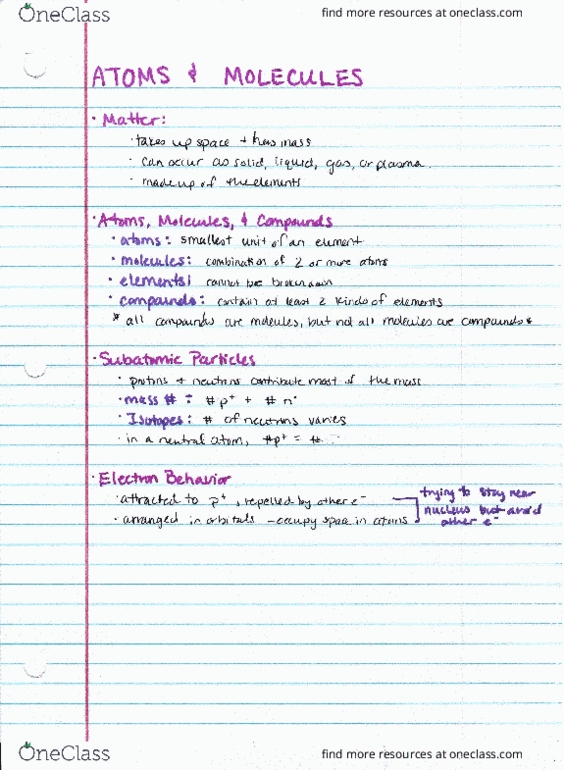 OneClass
find more resources at oneclass.com
ATOMS & MOLECULES
• Matter:
• takes up space + has mass
• can occur as solid, liquid, gas, or plasma.
• made up of the elements
• Atoms, Molecules, & Compounds
• atoms: smallest unit of an element
• molecules: combination of 2 or more atoms
• elements: cannot be broken down
• compounds: contain at least 2 kinds of elements
* all compounds are molecules, but not all molecules are compounds *
• Subatomic Particles
• protons + neutrons contribute most of the mass
• mass # : # p⁺ + # n°
• Isotopes: # of neutrons varies
• in a neutral atom, #p⁺ = #
• Electron Behavior
• attracted to p⁺, repelled by other e⁻
• arranged in orbitals – occupy space in atoms
trying to stay near
nucleus but avoid
other e⁻
OneClass
find more resources at oneclass.com